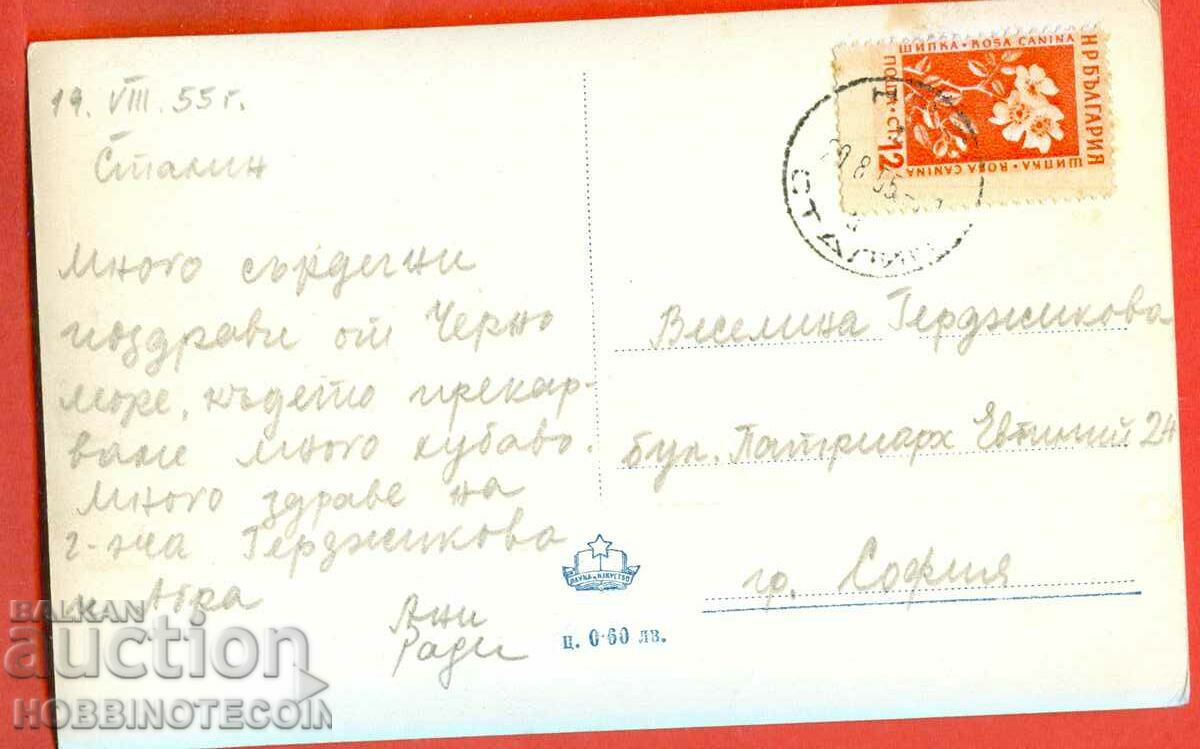 19. VIII. 55 г.
Сталин
Много сърдечни
поздрави от Черно
море, където прекар-
ваме много хубаво.
Много здраве на
г-жа Герджикова
и
Ани
Ради
НАУКА И ИЗКУСТВО
ц. 0·60 лв.
ШИПКА · ROSA CANINA
НР БЪЛГАРИЯ
ПОЩА · СТ. 12
ШИПКА · ROSA CANINA
СТАЛИН
Веселина Герджикова
бул. Патриарх Евтимий 24
гр. София
BALKAN
auction
HOBBINOTECOIN